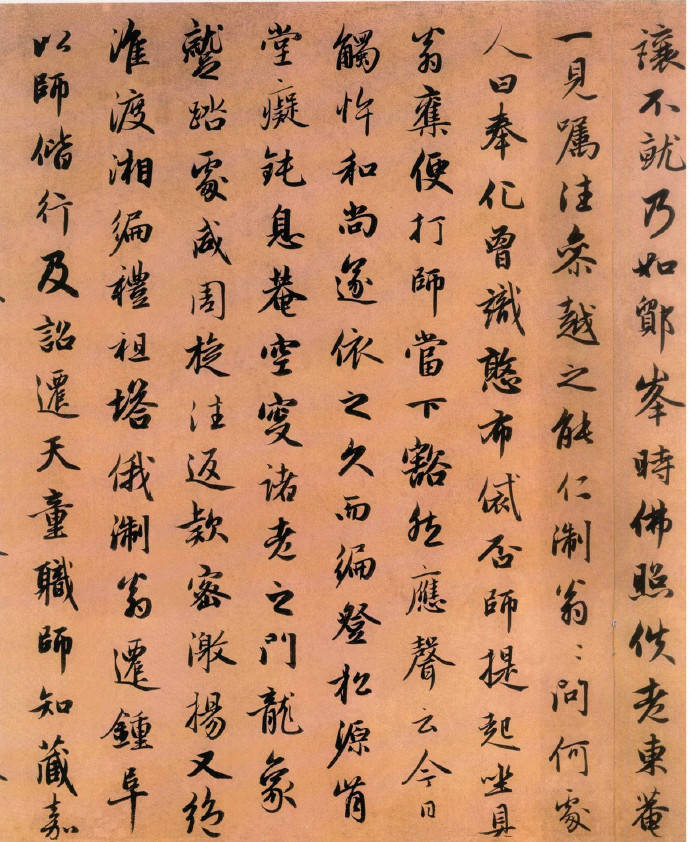 讓不就乃如鄮峯時佛照佚老東菴
一見囑往參越之能仁淛翁〻問何處
人曰奉化曾識憨布帒否師提起坐具
翁彙便打師當下豁然應聲云今日
觸忤和尚遂依之久而徧登松源肯
堂癡鈍息菴空叟諸老之門龍象
蹴踏處咸周旋往返款密激揚又絶
淮渡湘徧禮祖塔俄淛翁遷鍾阜
以師偕行及詔遷天童職師知藏嘉